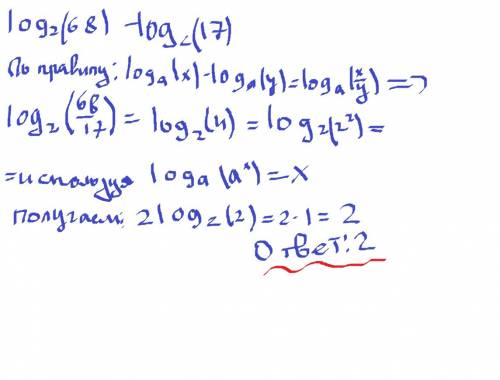 log₂(68) - log₂(17)
По правилу: logₐ(x) - logₐ(y) = logₐ(x/y) =>
log₂(68/17) = log₂(4) = log₂(2²) =
= используя logₐ(aˣ) = x
получаем: 2log₂(2) = 2·1 = 2
Ответ: 2